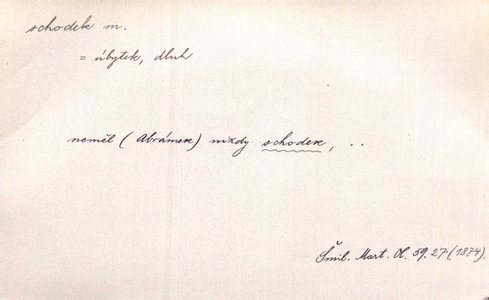 schodek m.
= úbytek, dluh
neměl (Abrámek) nikdy schodek, ..
Šmil. Mart. Ol. 59. 27 (1874).